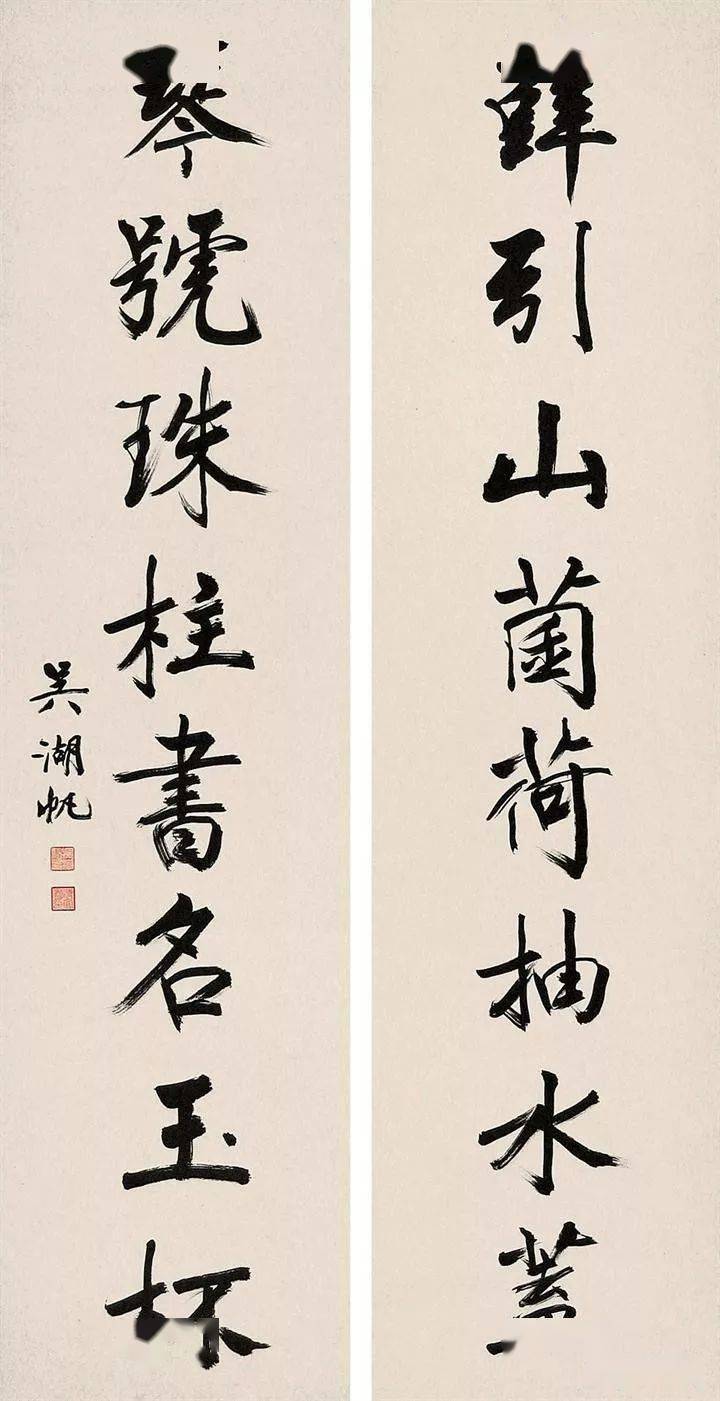 蘚引山菌荷抽水蓋
琴號珠柱書名玉杯
吳湖帆